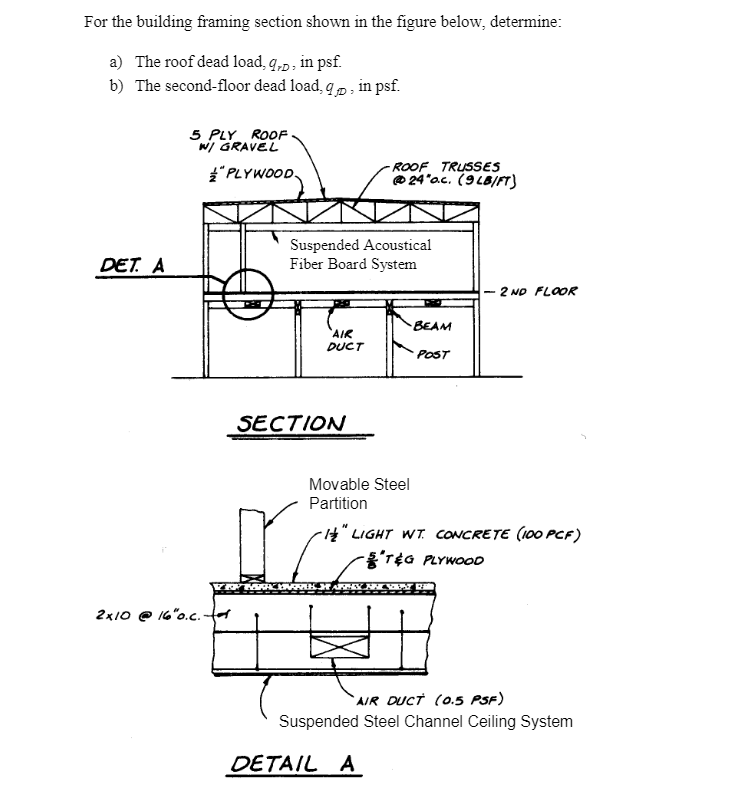 For the building framing section shown in the figure below, determine:
a) The roof dead load, q_rD, in psf.
b) The second-floor dead load, q_fD, in psf.
5 PLY ROOF
W/ GRAVEL
½" PLYWOOD
ROOF TRUSSES
@ 24" O.C. (9 LB/FT)
Suspended Acoustical
Fiber Board System
DET. A
2 ND FLOOR
AIR
DUCT
BEAM
POST
SECTION
Movable Steel
Partition
1½" LIGHT WT. CONCRETE (100 PCF)
⅝" T&G PLYWOOD
2x10 @ 16"O.C.
AIR DUCT (0.5 PSF)
Suspended Steel Channel Ceiling System
DETAIL A